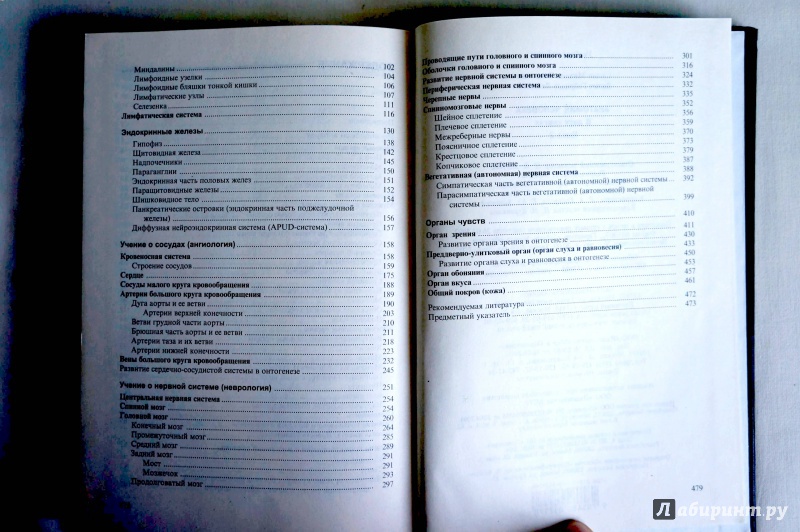 Миндалины 102
Лимфоидные узелки 104
Лимфоидные бляшки тонкой кишки 106
Лимфатические узлы 107
Селезенка 111
Лимфатическая система 116
Эндокринные железы 130
Гипофиз 138
Щитовидная железа 142
Надпочечники 145
Параганглии 150
Эндокринная часть половых желез 151
Паращитовидные железы 152
Шишковидное тело 154
Панкреатические островки (эндокринная часть поджелудочной
железы) 156
Диффузная нейроэндокринная система (APUD-система) 157
Учение о сосудах (ангиология) 158
Кровеносная система 158
Строение сосудов 159
Сердце 175
Сосуды малого круга кровообращения 188
Артерии большого круга кровообращения 189
Дуга аорты и ее ветви 190
Артерии верхней конечности 203
Ветви грудной части аорты 210
Брюшная часть аорты и ее ветви 211
Артерии таза и их ветви 218
Артерии нижней конечности 223
Вены большого круга кровообращения 232
Развитие сердечно-сосудистой системы в онтогенезе 245
Учение о нервной системе (неврология) 251
Центральная нервная система 254
Спинной мозг 254
Головной мозг 260
Конечный мозг 264
Промежуточный мозг 285
Средний мозг 289
Задний мозг 291
Мост 291
Мозжечок 293
Продолговатый мозг 297
Проводящие пути головного и спинного мозга 301
Оболочки головного и спинного мозга 316
Развитие нервной системы в онтогенезе 324
Периферическая нервная система 332
Черепные нервы 335
Спинномозговые нервы 352
Шейное сплетение 356
Плечевое сплетение 359
Межреберные нервы 370
Поясничное сплетение 373
Крестцовое сплетение 379
Копчиковое сплетение 387
Вегетативная (автономная) нервная система 388
Симпатическая часть вегетативной (автономной) нервной системы 392
Парасимпатическая часть вегетативной (автономной) нервной
системы 399
Органы чувств 410
Орган зрения 411
Развитие органа зрения в онтогенезе 430
Преддверно-улитковый орган (орган слуха и равновесия) 433
Развитие органа слуха и равновесия в онтогенезе 450
Орган обоняния 453
Орган вкуса 457
Общий покров (кожа) 461
Рекомендуемая литература 472
Предметный указатель 473
479
Лабиринт.ру